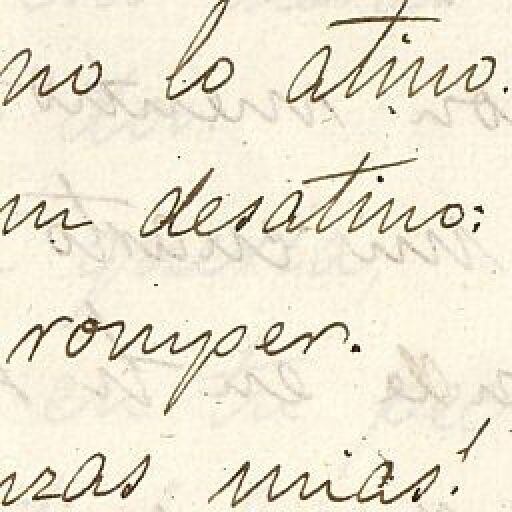 no lo atino.
un desatino:
romper.
nzas mias!